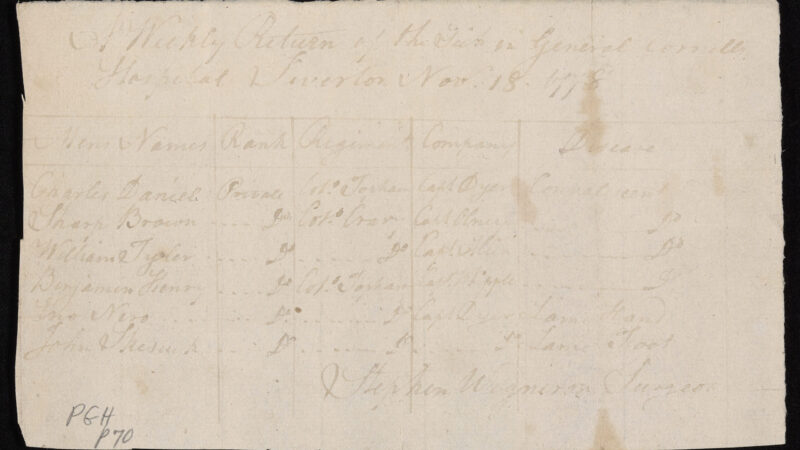 A Weekly Return of the Sick in General Cornells
Hospital Tiverton Nov. 18 1778
Mens Names Rank Regiment Company Disease
Charles Daniel Private Col.o Topham Capt Dyer Convalescent
Sharp Brown Do Col.o Crary Capt Olney Do
William Tyler Do Do Capt Do
Benjamin Henry Do Col.o Topham Capt Do
Nero Do Do Capt Dyer Lame Hand
John Do Do Do Lame Foot
Stephen Wigneron Surgeon
PGH
P70